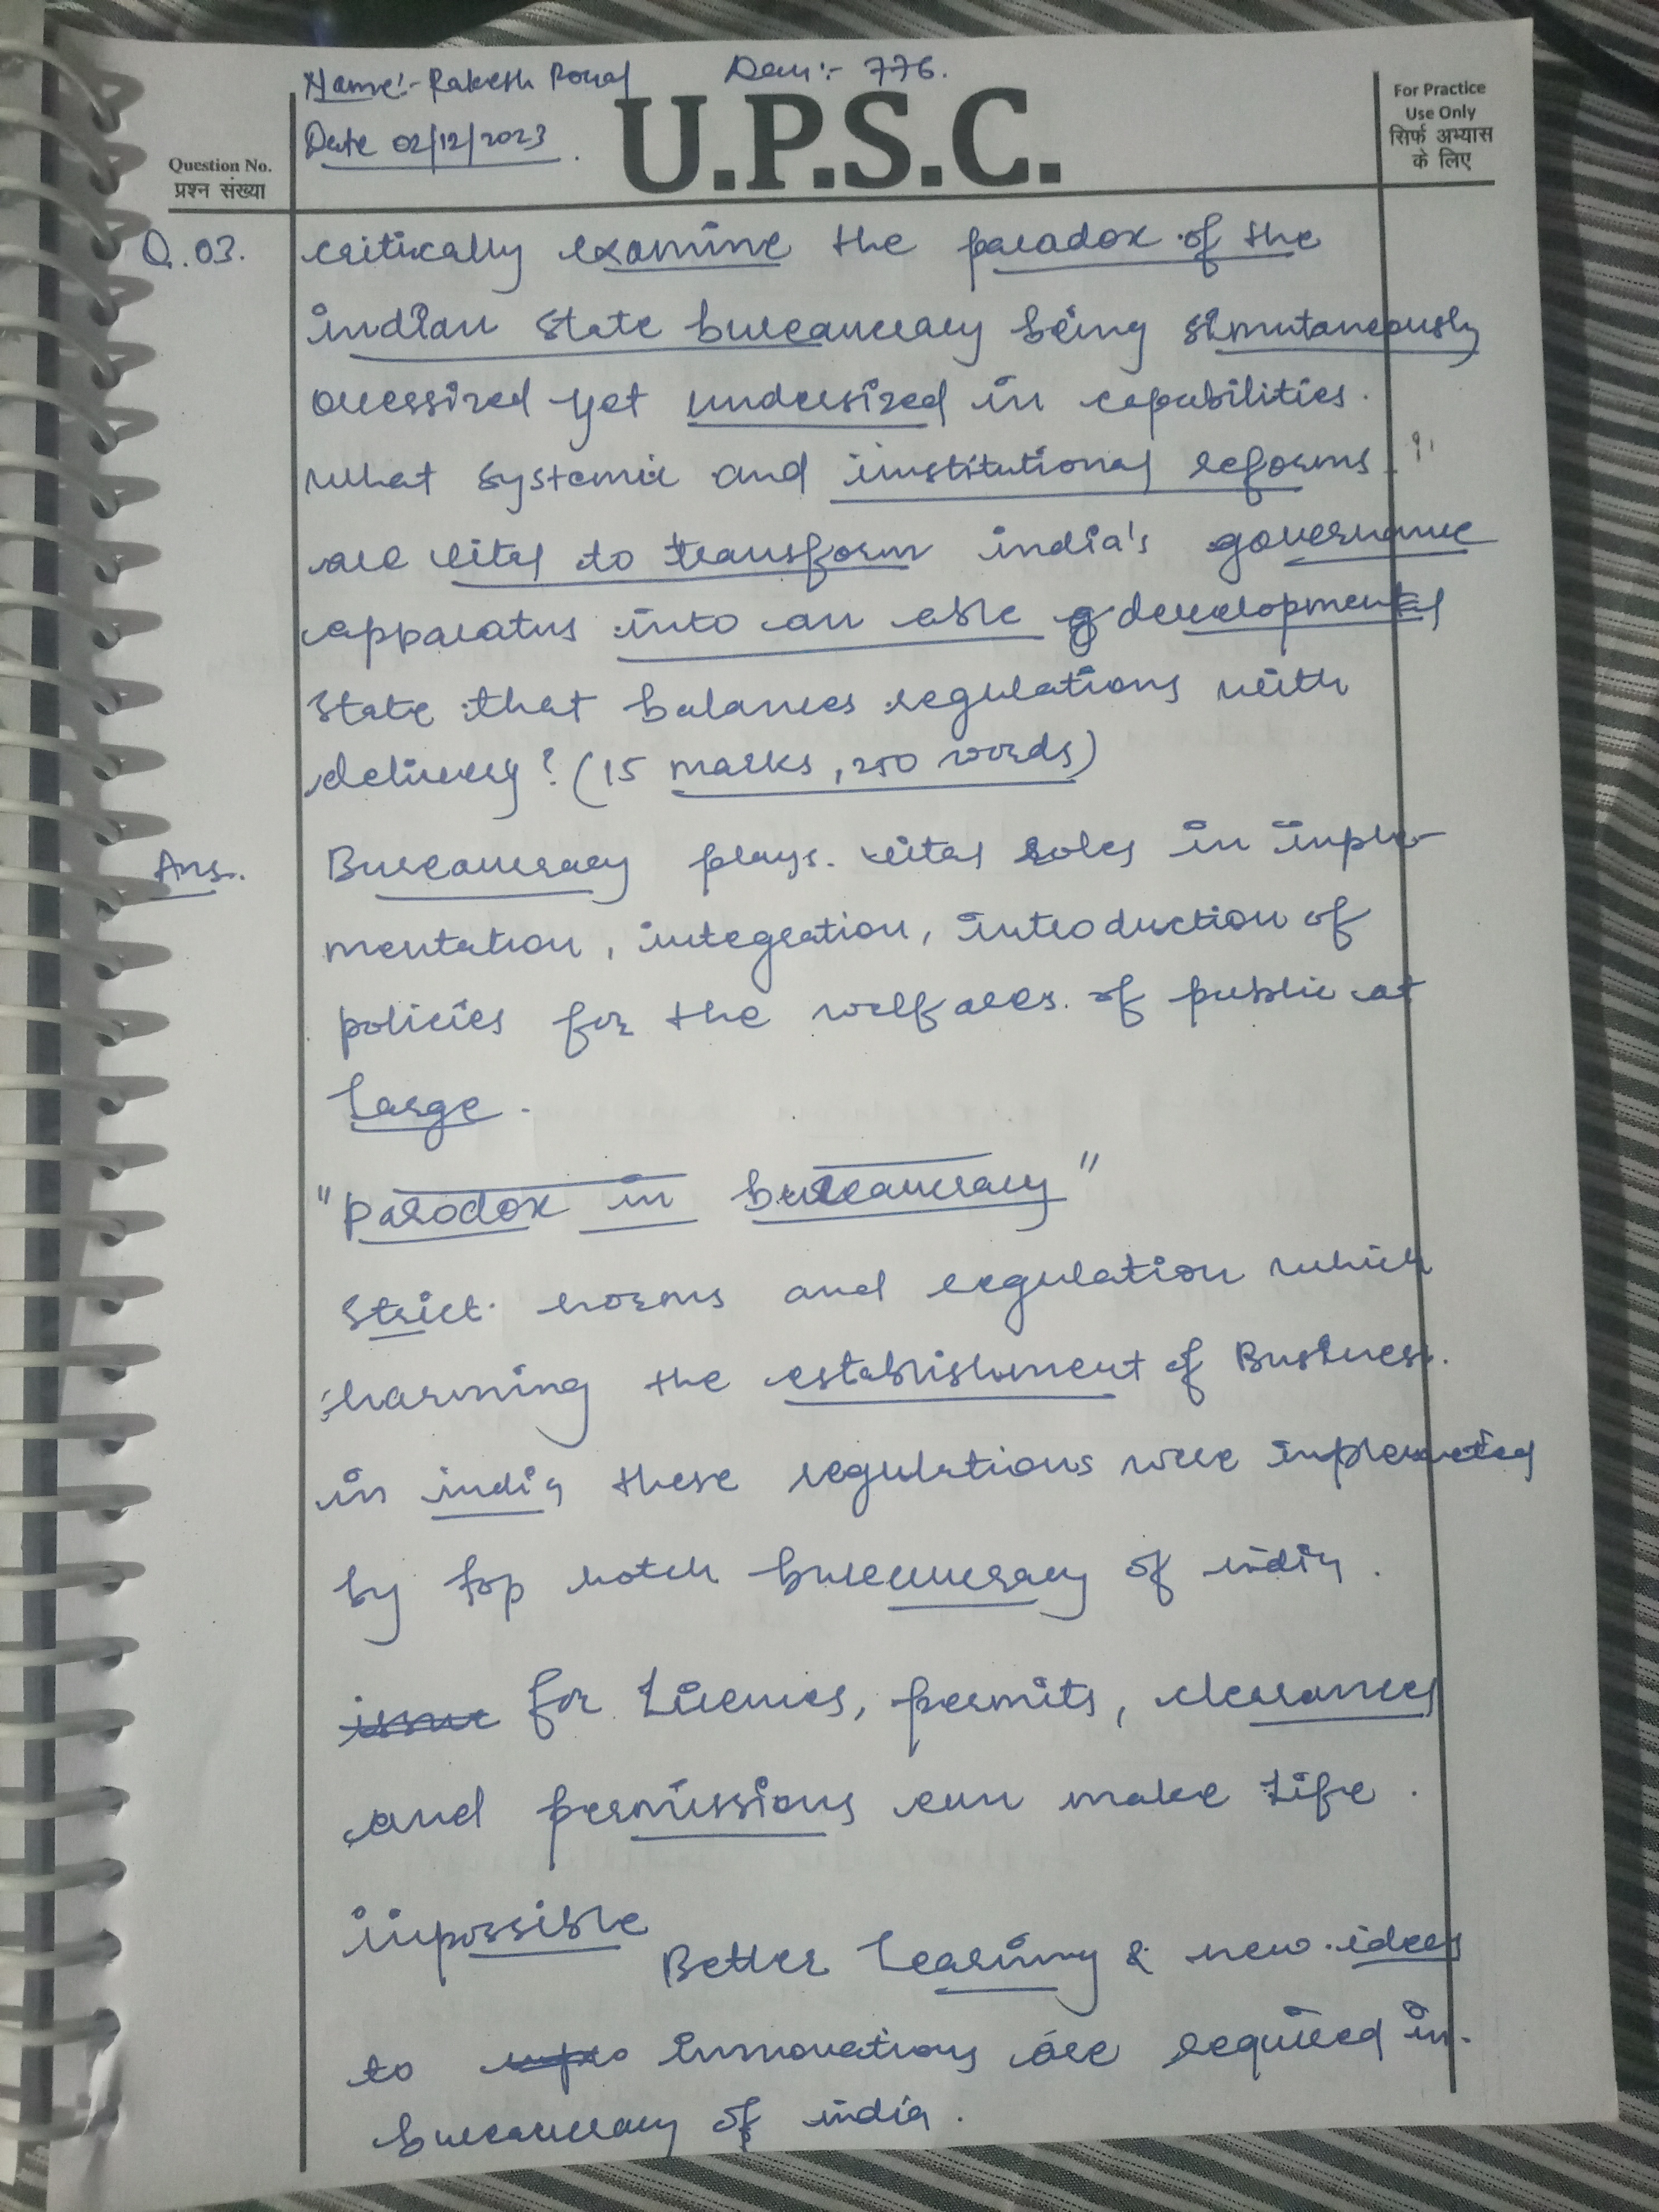 Name:- Rakesh Day:- 776.
Date 02/12/2023.
U.P.S.C.
For Practice
Use Only
सिर्फ अभ्यास
के लिए
Question No.
प्रश्न संख्या
Q.03. critically examine the paradox of the
indian state bureaucracy being simutaneously
oversized yet undersized in capabilities.
what systemic and institutional reforms
are vital to transform india's governance
apparatus into an able developmental
state that balances regulations with
delivery? (15 marks, 250 words)
Ans. Bureaucracy plays vital roles in imple-
mentation, integration, introduction of
policies for the welfares of public at
large.
"Parodox in bureaucracy"
Strict norms and regulation which
harming the establishment of Business.
in india these regulations were implemented
by top notch bureaucracy of india.
for Licences, permits, clearances
and permissions can make life.
impossible
Better learning & new ideas
to innovations are required in.
bureaucracy of india.